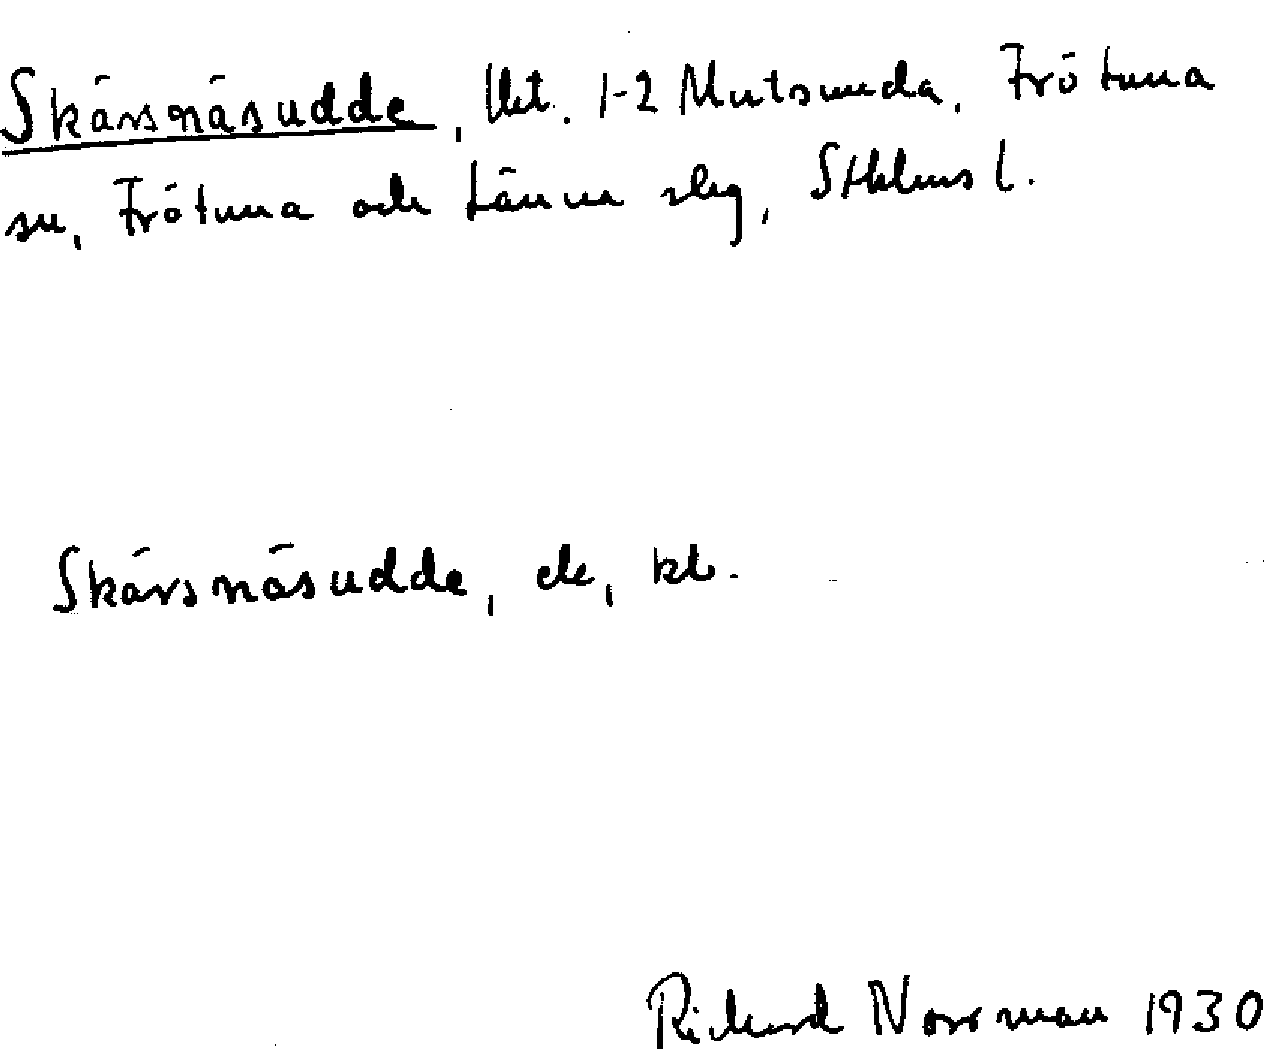 Skärsnäsudde, lht. 1-2 Mutsunda, Frötuna
sn, Frötuna och Länna slg, Sthlms l.
Skärsnäsudde, de, kb.
Rickard Norrman 1930